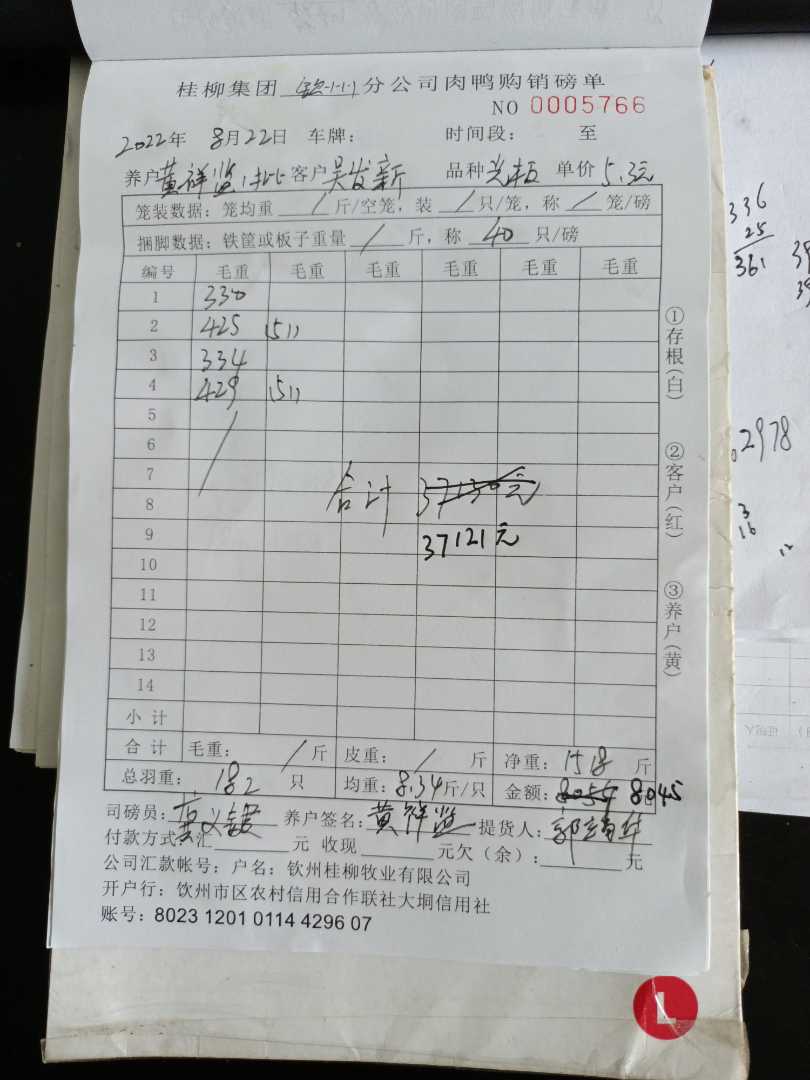 桂柳集团 分公司肉鸭购销磅单
NO 0005766
2022年 8月22日 车牌： 时间段： 至
养户 黄祥监 1批 客户 吴发新 品种 单价 5.3元
笼装数据：笼均重 / 斤/空笼，装 / 只/笼，称 / 笼/磅
捆脚数据：铁筐或板子重量 / 斤，称 40 只/磅
编号 毛重 毛重 毛重 毛重 毛重 毛重
1 330
2 425 (51)
3 334
4 429 (51)
5
6
7
8
合计 37130元
9
37121元
10
11
12
13
14
小计
合计 毛重： / 斤 皮重： / 斤 净重：1518 斤
总羽重： 182 只 均重：8.34斤/只 金额：8055 8045
司磅员： 养户签名：黄祥监 提货人：
付款方式：汇 元 收现 元欠（余）： 元
公司汇款帐号：户名：钦州桂柳牧业有限公司
开户行：钦州市区农村信用合作联社大垌信用社
账号：8023 1201 0114 4296 07
①存根(白)
②客户(红)
③养户(黄)
336
25
361
2978
3
16
12
L